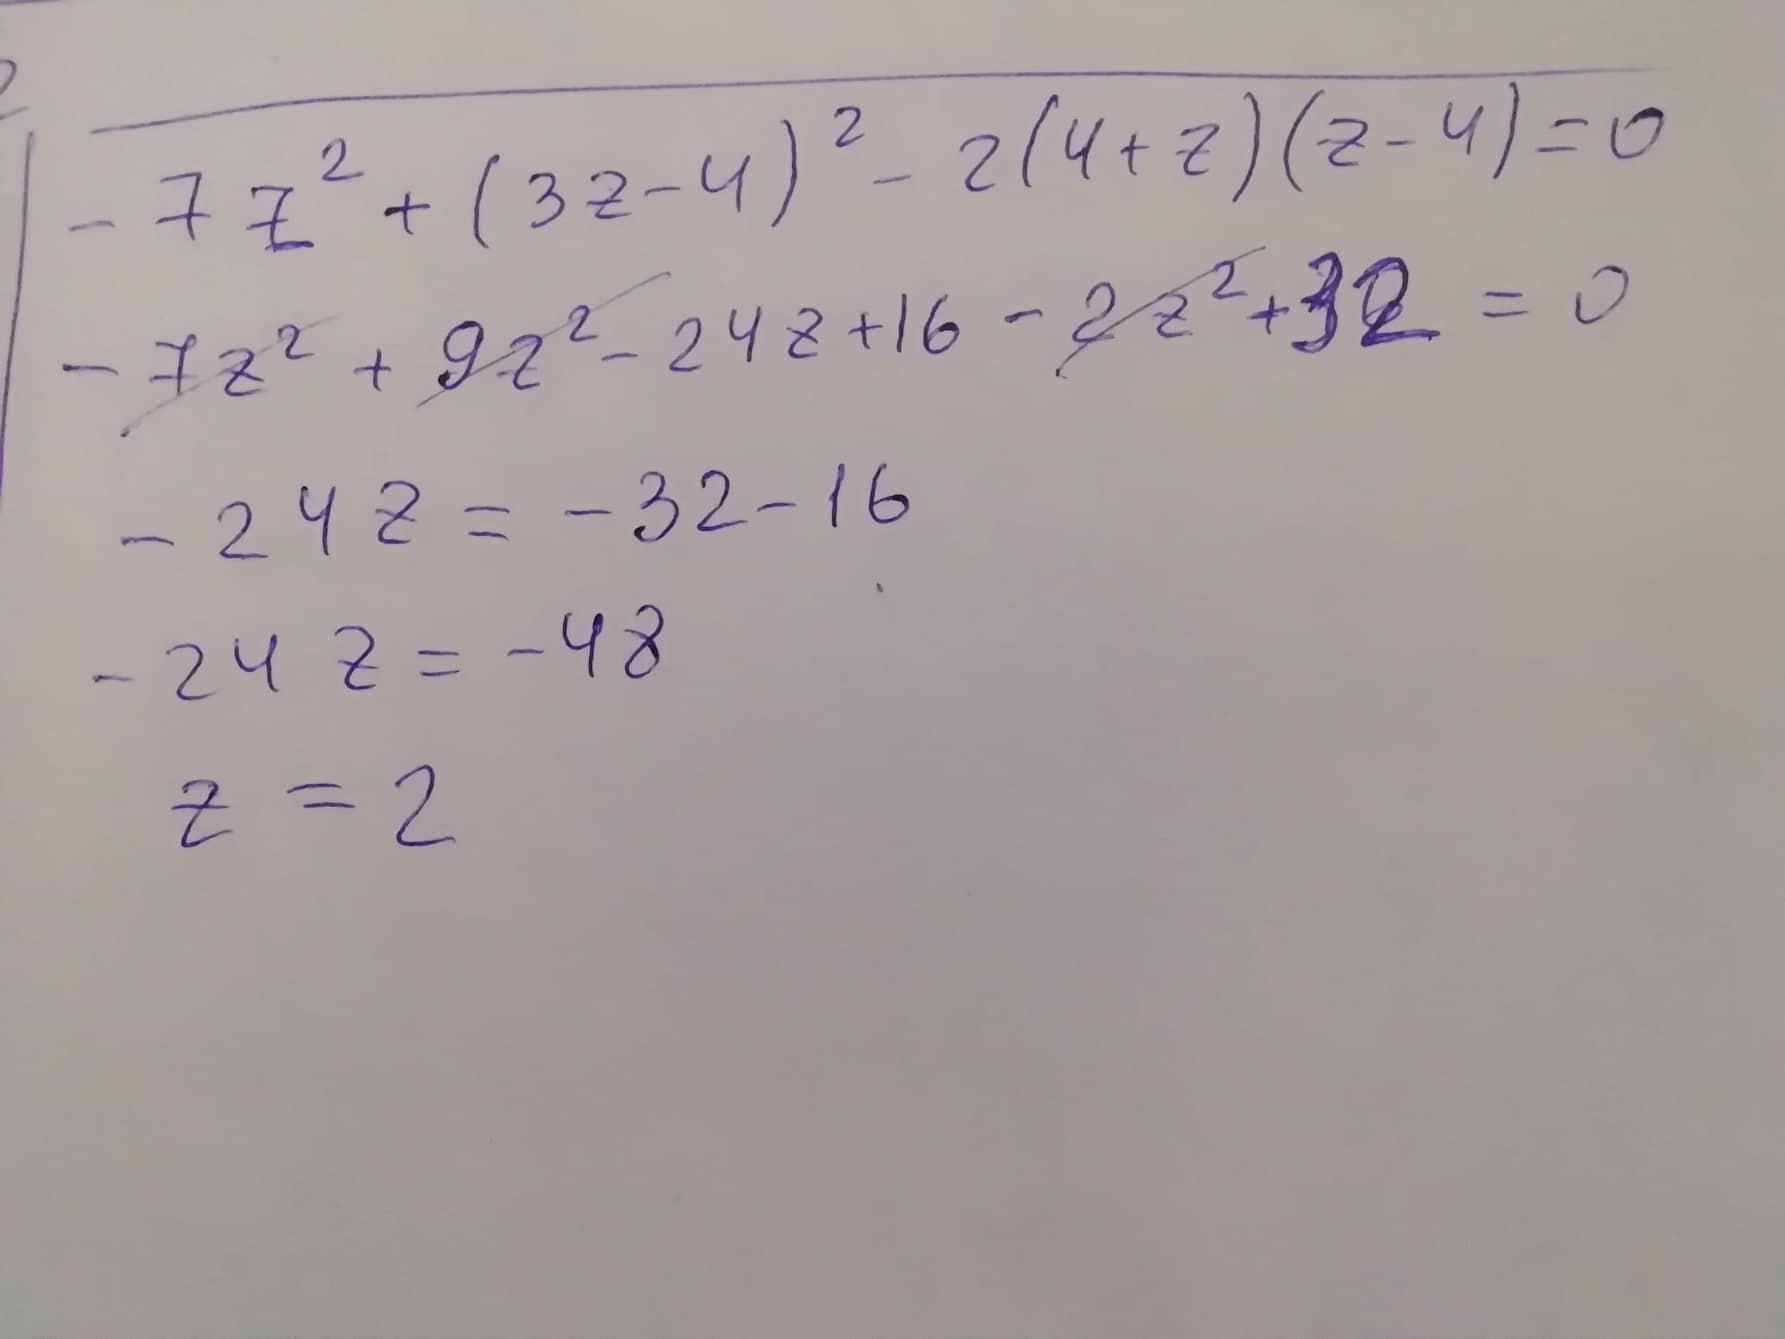 -7z²+(3z-4)²-2(4+z)(z-4)=0
-7z²+9z²-24z+16-2z²+32=0
-24z=-32-16
-24z=-48
z=2